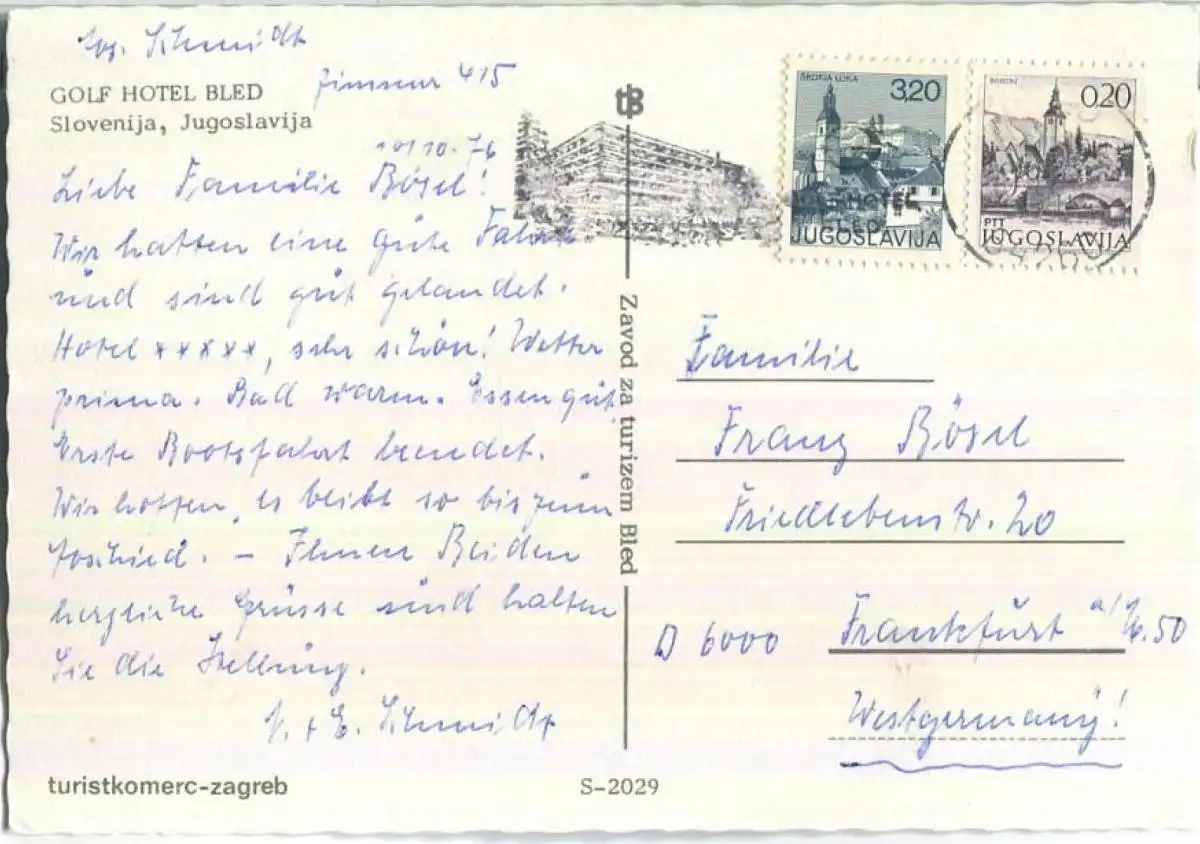 Schmidt
Zimmer 415
GOLF HOTEL BLED
Slovenija, Jugoslavija
10.76
Liebe Familie Bösel!
Wir hatten eine gute Fahrt
und sind gut gelandet.
Hotel *****, sehr schön! Wetter
prima. Bad warm. Essen gut.
Erste Bootsfahrt beendet.
Wir hoffen, es beibt so bis zum
Ihnen Beiden
herzliche Grüsse und halten
Sie die Stellung.
E. Schmidt
turistkomerc-zagreb
S-2029
Zavod za turizem Bled
tB
ŠKOFJA LOKA
3,20
JUGOSLAVIJA
BOHINJ
0,20
PTT
JUGOSLAVIJA
GOLF HOTEL
BLED
Familie
Franz Bösel
Friedlebenstr. 20
D 6000 Frankfurt a/M. 50
Westgermany!